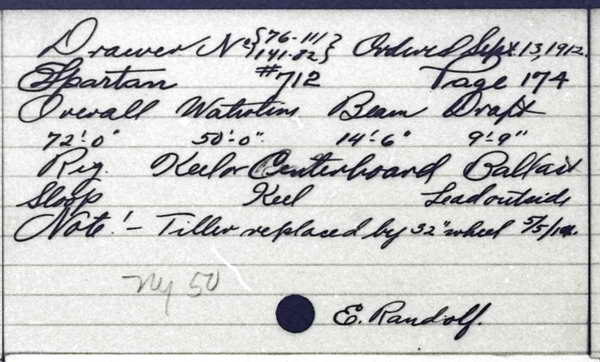 Drawer No {76-111} {141-82} Ordered Sept 13, 1912.
Spartan #712 Page 174
Overall Waterline Beam Draft
72'-0" 50'-0" 14'-6" 9'-9"
Rig. Keel or Centerboard Ballast
Sloop Keel Lead outside
Note! - Tiller replaced by 32" wheel
NY 50
E. Randolf.